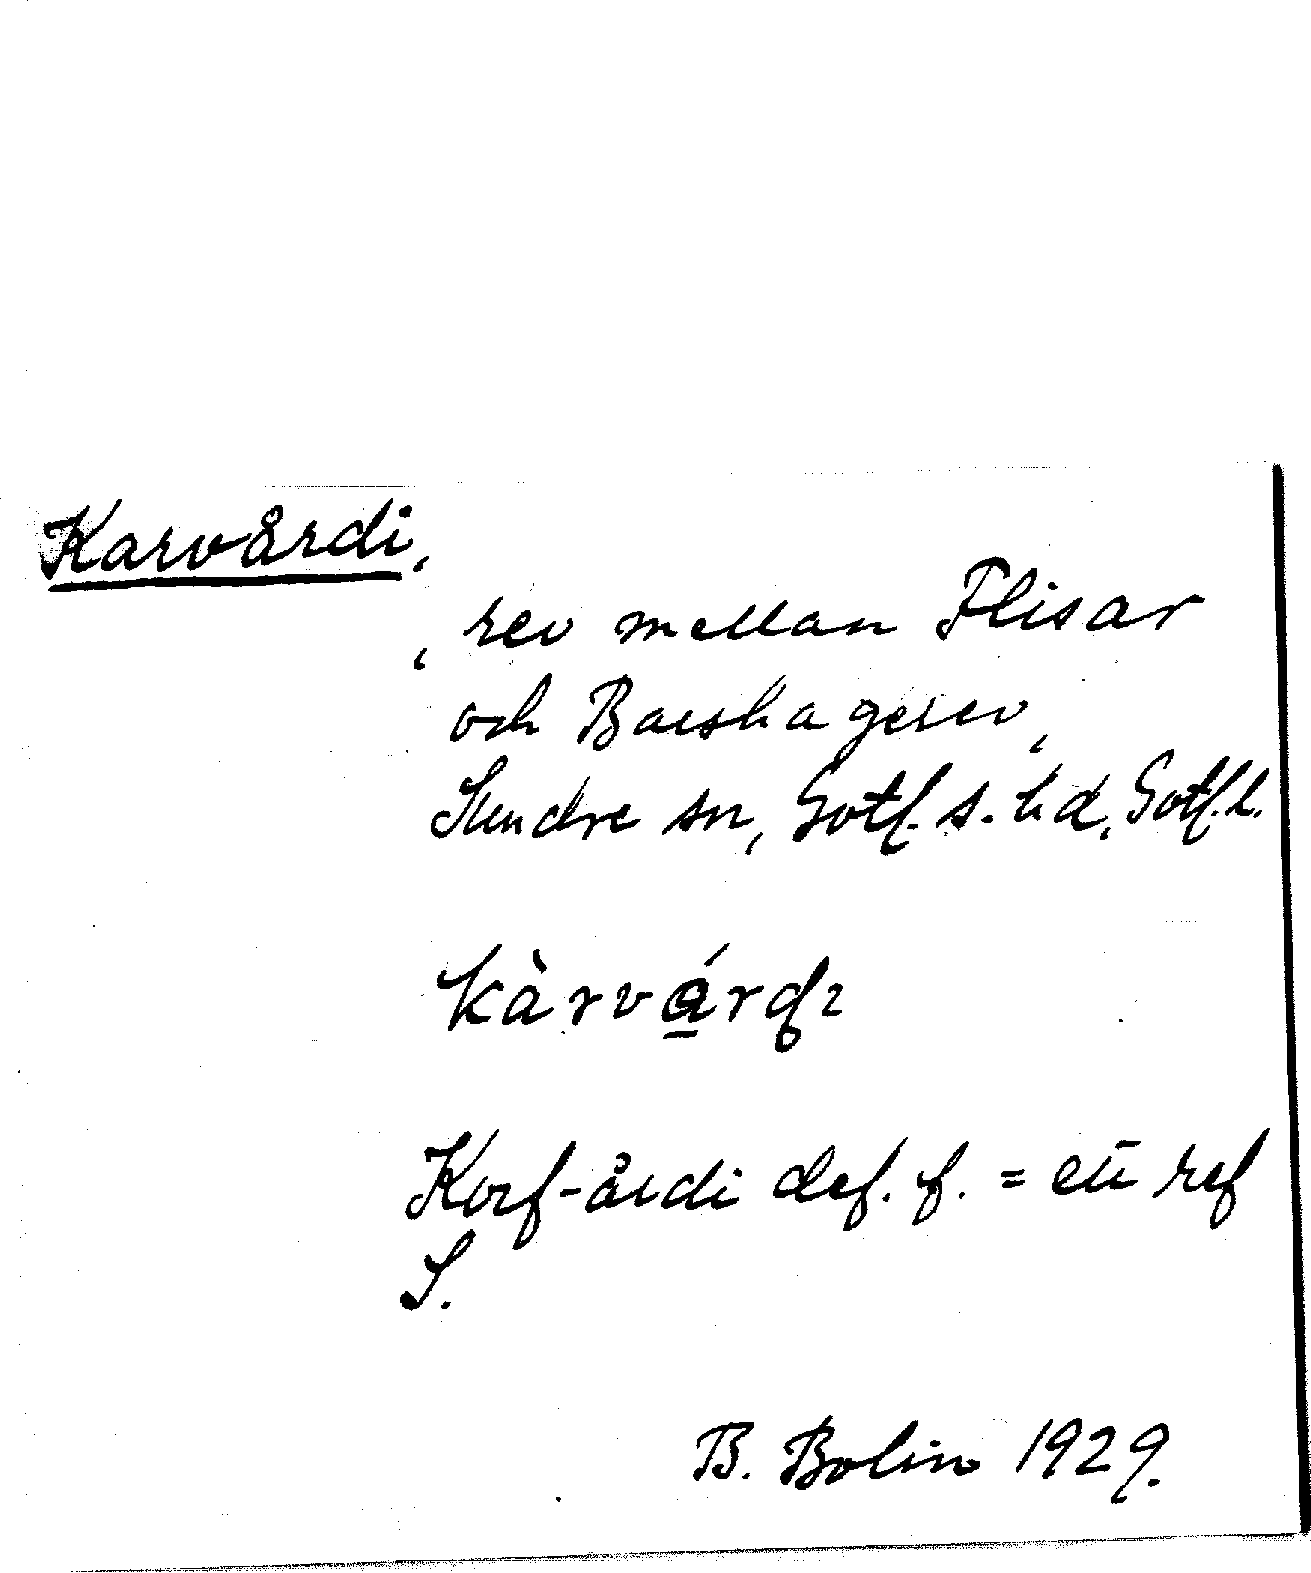 Karvårdi,
, rev mellan Flisar
och Barshagerev,
Sundre sn, Gotl. s. hd, Gotl. l.
kàrvárdɩ
Korf-årdi def. f. = ett ref
S.
B. Bolin 1929.